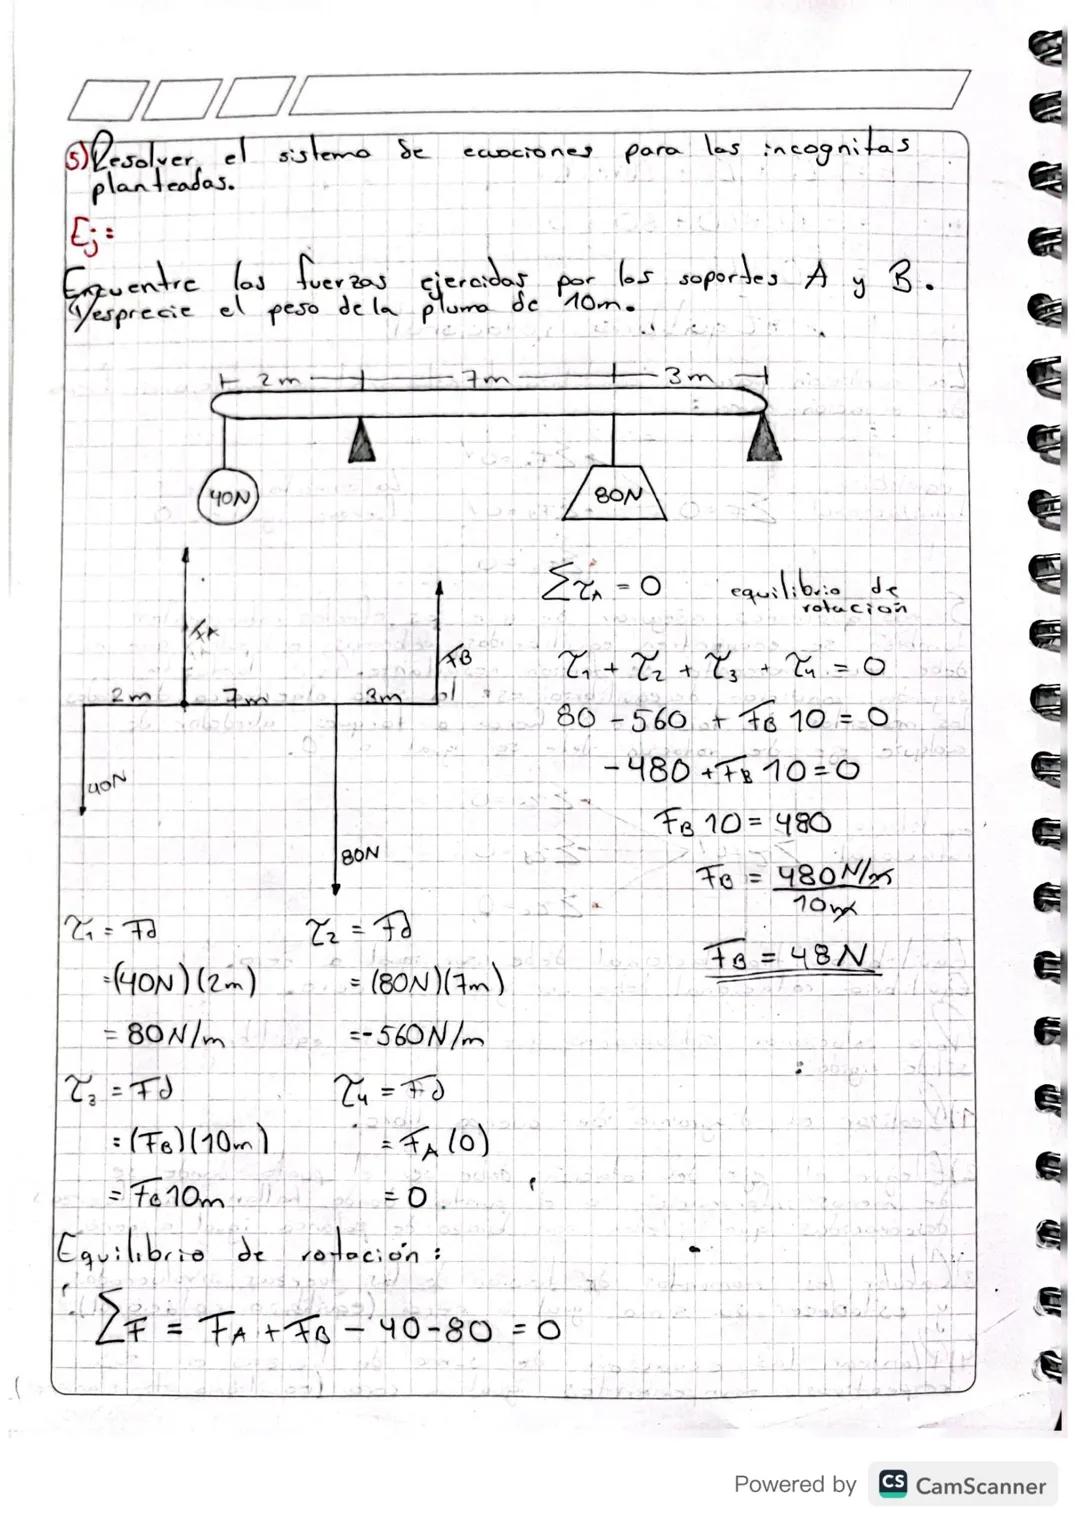 5) Resolver el sistema de ecuaciones para las incognitas
planteadas.
Ej:
Encuentre las fuerzas ejercidas por los soportes A y B.
Desprecie el peso de la pluma de 10m.
2m 7m 3m
40N
80N
FA
FB
2m 7m 3m
40N
80N
ΣτA = 0 equilibrio de
rotación
τ1 + τ2 + τ3 + τ4 = 0
80 - 560 + FB 10 = 0
- 480 + FB 10 = 0
FB 10 = 480
FB = 480 N/m
10m
FB = 48 N
τ1 = Fd
=(40N)(2m)
= 80N/m
τ2 = Fd
= (80N)(7m)
=-560N/m
τ3 = Fd
= (FB)(10m)
= FB 10m
τ4 = Fd
= FA (0)
= 0
Equilibrio de rotación:
ΣF = FA + FB - 40 - 80 = 0
Powered by CS CamScanner